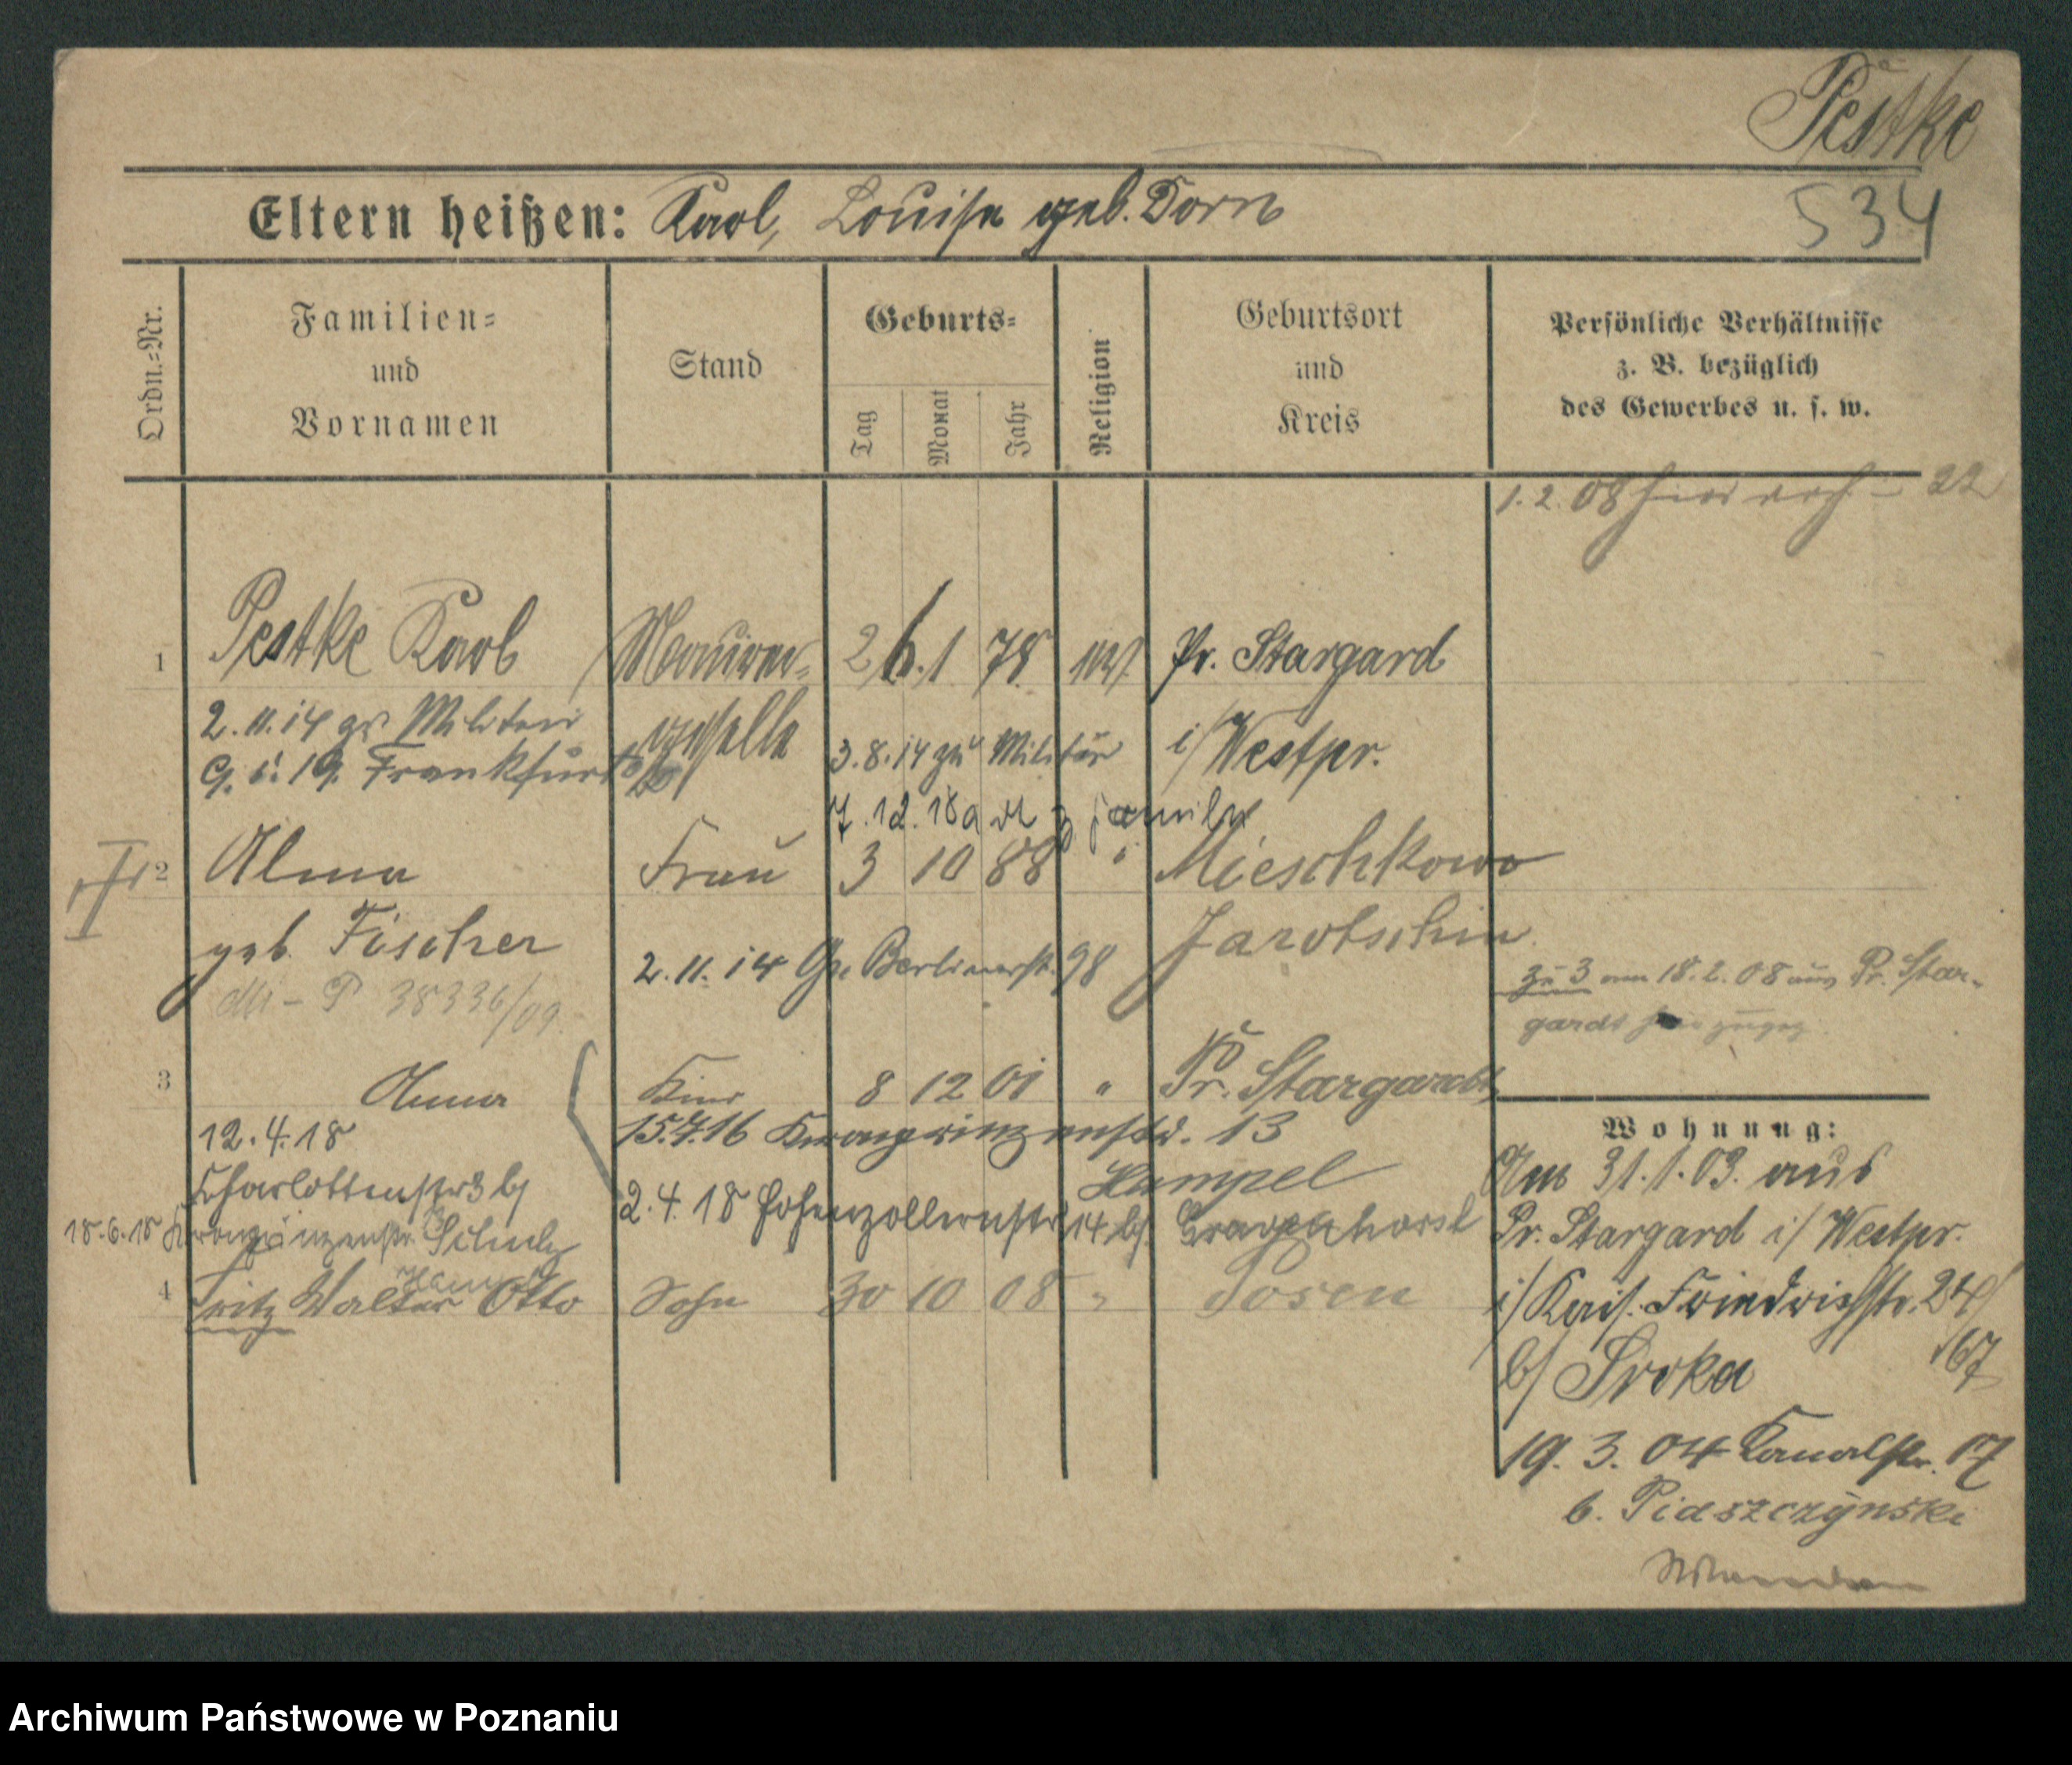 Pestke
534
Eltern heißen: Karl, Louise geb. Dorn
Ordn.=Nr.
Familien=
und
Vornamen
Stand
Geburts=
Tag
Monat
Jahr
Religion
Geburtsort
und
Kreis
Persönliche Verhältnisse
z. B. bezüglich
des Gewerbes u. s. w.
1.2.08 hier 22
1 Pestke Karl Maurer- 26.1 78 Pr. Stargard
2.11.14 Militär
geselle
3.8.14 zu Militär
i/Westpr.
Frankfurt
7.12.18 a d z Familie
2 Alma Frau 3 10 88 " Mieschkowo
geb. Fischer
Jarotschin
2.11.14 Gr. Berlinerstr. 98
P 38336/09.
zu 3 am 18.2.08 aus Pr. Star-
gardt hier zugez
3 Anna Kind 8 12 01 " Pr. Stargardt
12.4.18
15.7.16 Kronprinzenstr. 13
Hampel
Charlottenstr 3 b/
2.4.18 Hohenzollernstr 14 b/ Gravenhorst
18.6.18 Kronprinzenstr. Schulz
4 Fritz Walter Otto Sohn 30 10 08 " Posen
Wohnung:
Am 31.1.03. aus
Pr. Stargard i/Westpr.
i/Kais. Friedrichstr. 24/
67
b/ Sroka
19.3.04 Kanalstr. 17
b. Piaszczynski
Archiwum Państwowe w Poznaniu